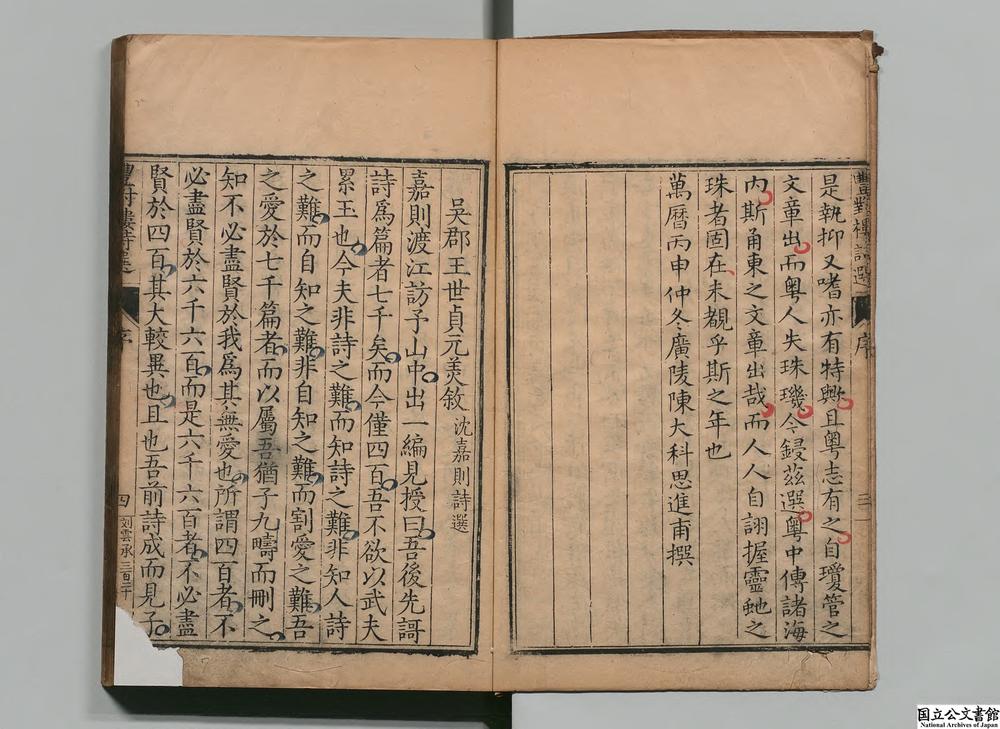 豐對樓詩選
序
三
是孰抑又嗜亦有特興且粵志有之自瓊管之
文章出而粵人失珠璣今鋟茲選粵中傳諸海
內斯甬東之文章出哉而人人自詡握靈虵之
珠者固在未覩乎斯之年也
萬曆丙申仲冬廣陵陳大科思進甫撰
吳郡王世貞元美敘 沈嘉則詩選
嘉則渡江訪予山中出一編見授曰吾後先謌
詩爲篇者七千矣而今僅四百吾不欲以武夫
累玉也今夫非詩之難而知詩之難非知人詩
之難而自知之難非自知之難而割愛之難吾
之愛於七千篇者而以屬吾猶子九疇而刪之
知不必盡賢於我爲其無愛也所謂四百者不
必盡賢於六千六百而是六千六百者不必盡
賢於四百其大較異也且也吾前詩成而見子
豐對樓詩選
序
四
刘雲承
三百二十
国立公文書館
National Archives of Japan